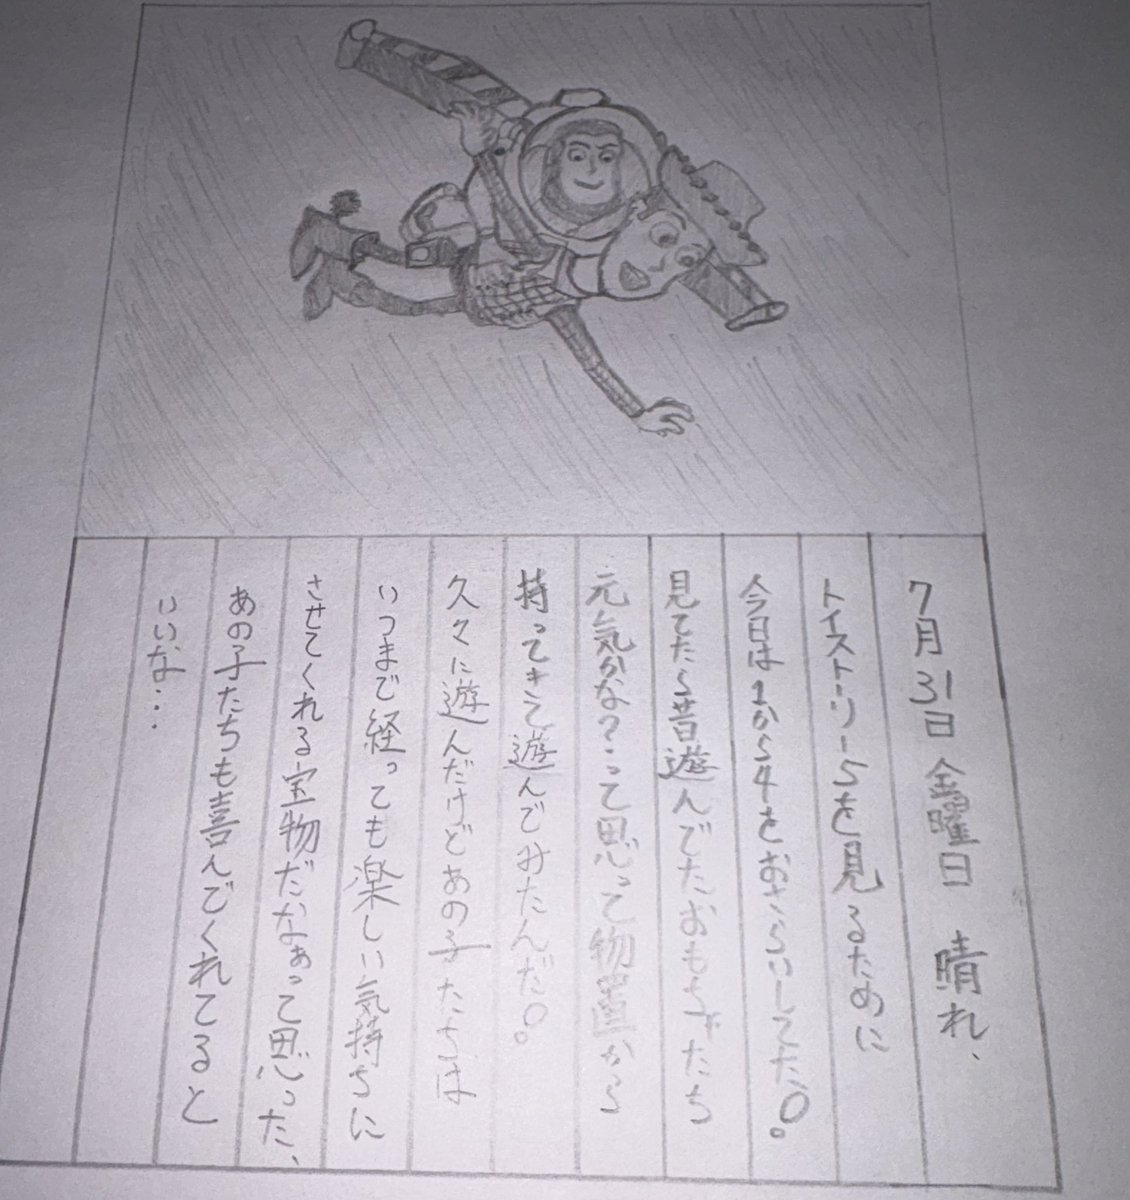 7月31日 金曜日 晴れ、
トイストーリー5を見るために
今日は1から4をおさらいしてた。
見てたら昔遊んでたおもちゃたち
元気かな?って思って物置から
持ってきて遊んでみたんだ。
久々に遊んだけどあの子たちは
いつまで経っても楽しい気持ちに
させてくれる宝物だなぁって思った、
あの子たちも喜んでくれてると
いいな...